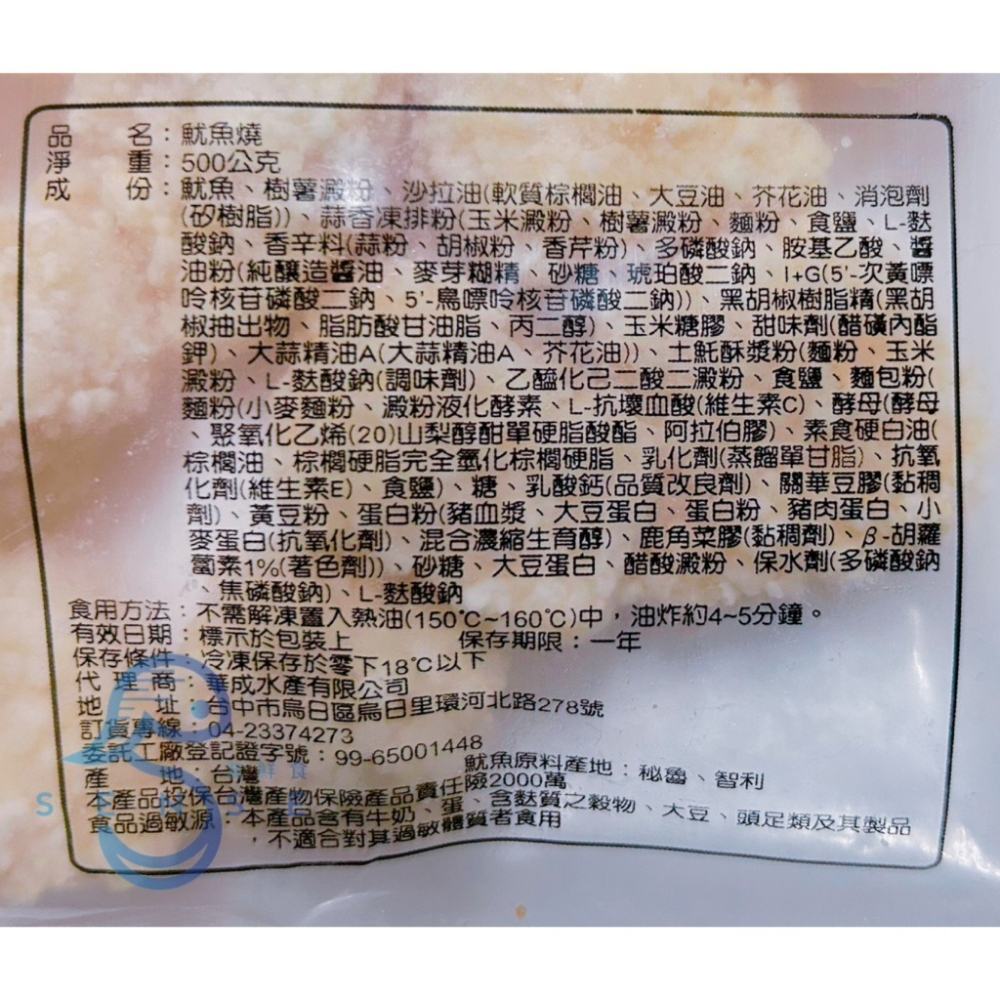 品名：魷魚燒
淨重：500公克
成份：魷魚、樹薯澱粉、沙拉油(軟質棕櫚油、大豆油、芥花油、消泡劑
(矽樹脂))、蒜香凍排粉(玉米澱粉、樹薯澱粉、麵粉、食鹽、L-麩
酸鈉、香辛料(蒜粉、胡椒粉、香芹粉)、多磷酸鈉、胺基乙酸、醬
油粉(純釀造醬油、麥芽糊精、砂糖、琥珀酸二鈉、I+G(5'-次黃嘌
呤核苷磷酸二鈉、5'-鳥嘌呤核苷磷酸二鈉))、黑胡椒樹脂精(黑胡
椒抽出物、脂肪酸甘油脂、丙二醇)、玉米糖膠、甜味劑(醋磺內酯
鉀)、大蒜精油A(大蒜精油A、芥花油))、土魠酥漿粉(麵粉、玉米
澱粉、L-麩酸鈉(調味劑)、乙醯化己二酸二澱粉、食鹽、麵包粉(
麵粉(小麥麵粉、澱粉液化酵素、L-抗壞血酸(維生素C)、酵母(酵母
、聚氧化乙烯(20)山梨醇酐單硬脂酸酯、阿拉伯膠)、素食硬白油(
棕櫚油、棕櫚硬脂完全氫化棕櫚硬脂、乳化劑(蒸餾單甘脂)、抗氧
化劑(維生素E)、食鹽)、糖、乳酸鈣(品質改良劑)、關華豆膠(黏稠
劑)、黃豆粉、蛋白粉(豬血漿、大豆蛋白、蛋白粉、豬肉蛋白、小
麥蛋白(抗氧化劑)、混合濃縮生育醇)、鹿角菜膠(黏稠劑)、β-胡蘿
蔔素1%(著色劑))、砂糖、大豆蛋白、醋酸澱粉、保水劑(多磷酸鈉
、焦磷酸鈉)、L-麩酸鈉
食用方法：不需解凍置入熱油(150℃~160℃)中，油炸約4~5分鐘。
有效日期：標示於包裝上 保存期限：一年
保存條件：冷凍保存於零下18℃以下
代理商：華成水產有限公司
地址：台中市烏日區烏日里環河北路278號
訂貨專線：04-23374273
委託工廠登記證字號：99-65001448
產地：台灣 魷魚原料產地：秘魯、智利
本產品投保台灣產物保險產品責任險2000萬
食品過敏源：本產品含有牛奶、蛋、含麩質之穀物、大豆、頭足類及其製品
，不適合對其過敏體質者食用